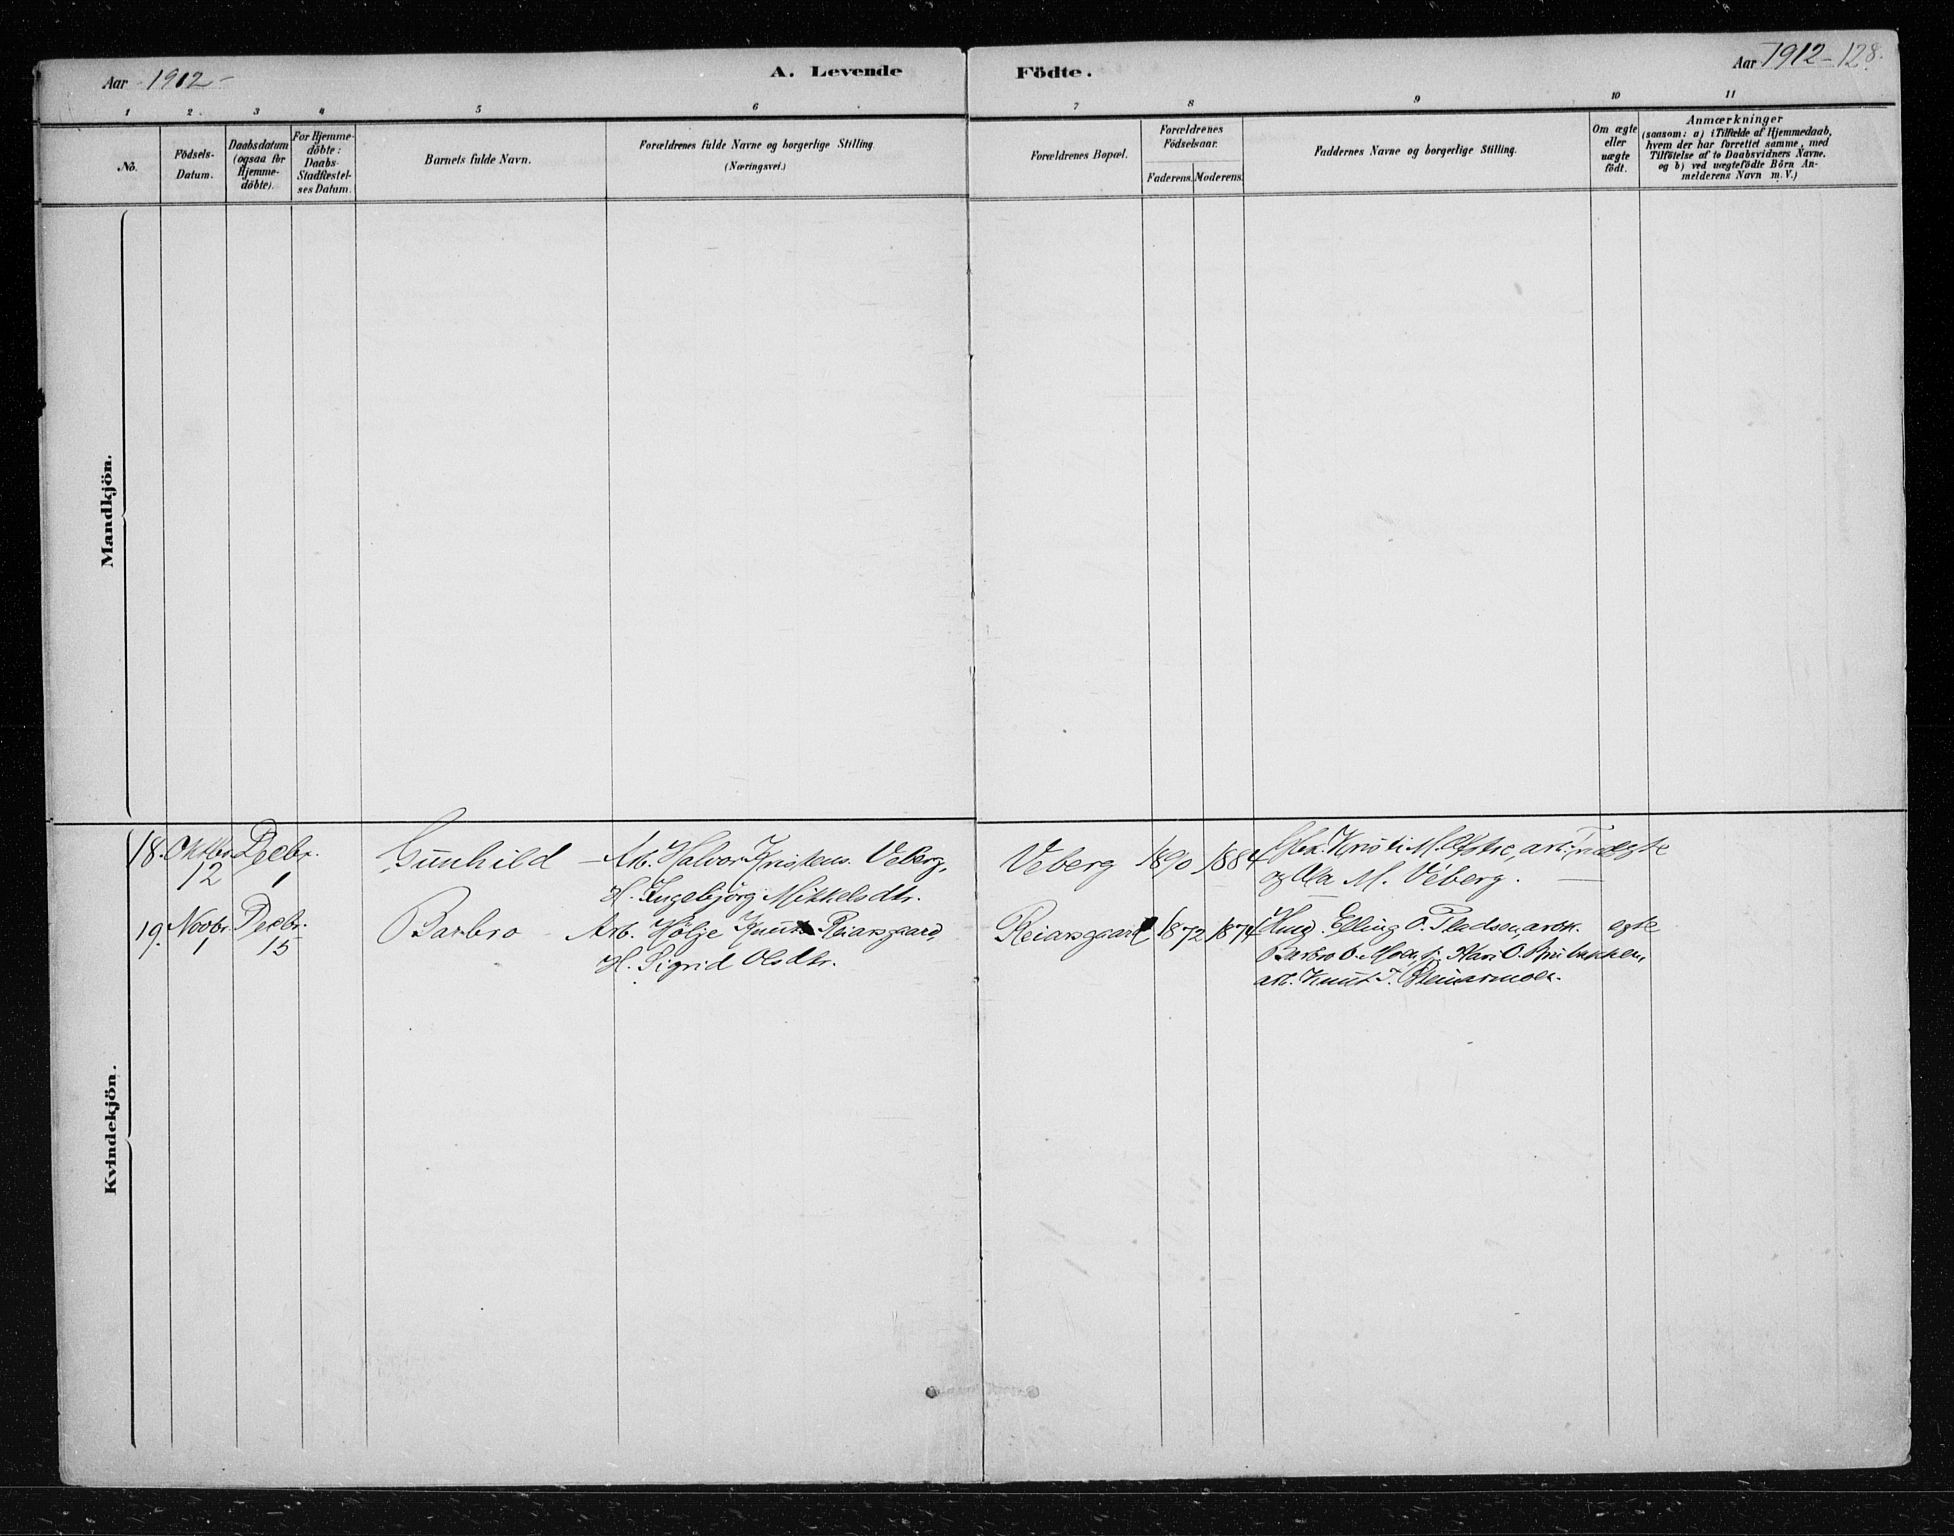 Aar 1912 –
A. Levende Födte.
Aar 1912 – 128.
1 2. 3 4 5 6 7 8 9 10 11
No.
Födsels-
Datum.
Daabsdatum
(ogsaa for
Hjemme-
döbte).
For Hjemme-
döbte:
Daabs-
Stadfæstel-
ses Datum.
Barnets fulde Navn.
Forældrenes fulde Navne og borgerlige Stilling
(Næringsvei.)
Forældrenes Bopæl.
Forældrenes
Födselsaar.
Faderens. Moderens.
Faddernes Navne og borgerlige Stilling.
Om ægte
eller
uægte
födt.
Anmærkninger
(saasom: a) i Tilfælde af Hjemmedaab,
hvem der har forrettet samme, med
Tilföielse af to Daabsvidners Navne.
og b) ved uægtefödte Börn An-
melderens Navn m. V.)
Mandkjön.
Kvindekjön.
18. Oktbr. 12 Decbr. 1 Gunhild – Arb. Halvor Kristens. Veberg,
H. Ingebjörg Mikkelsdtr.
Veberg 1890 1884
og M. Veberg. egte
19. Novbr. 1 Decbr. 15 Barbro Arb. Hölje Knuts Reiarsgaard,
H. Sigrid Olsdtr.
Reiarsgaard 1872 1874 Elling O. Pladsen, egte
Barbro O. Kari O.
arb. Knut T.